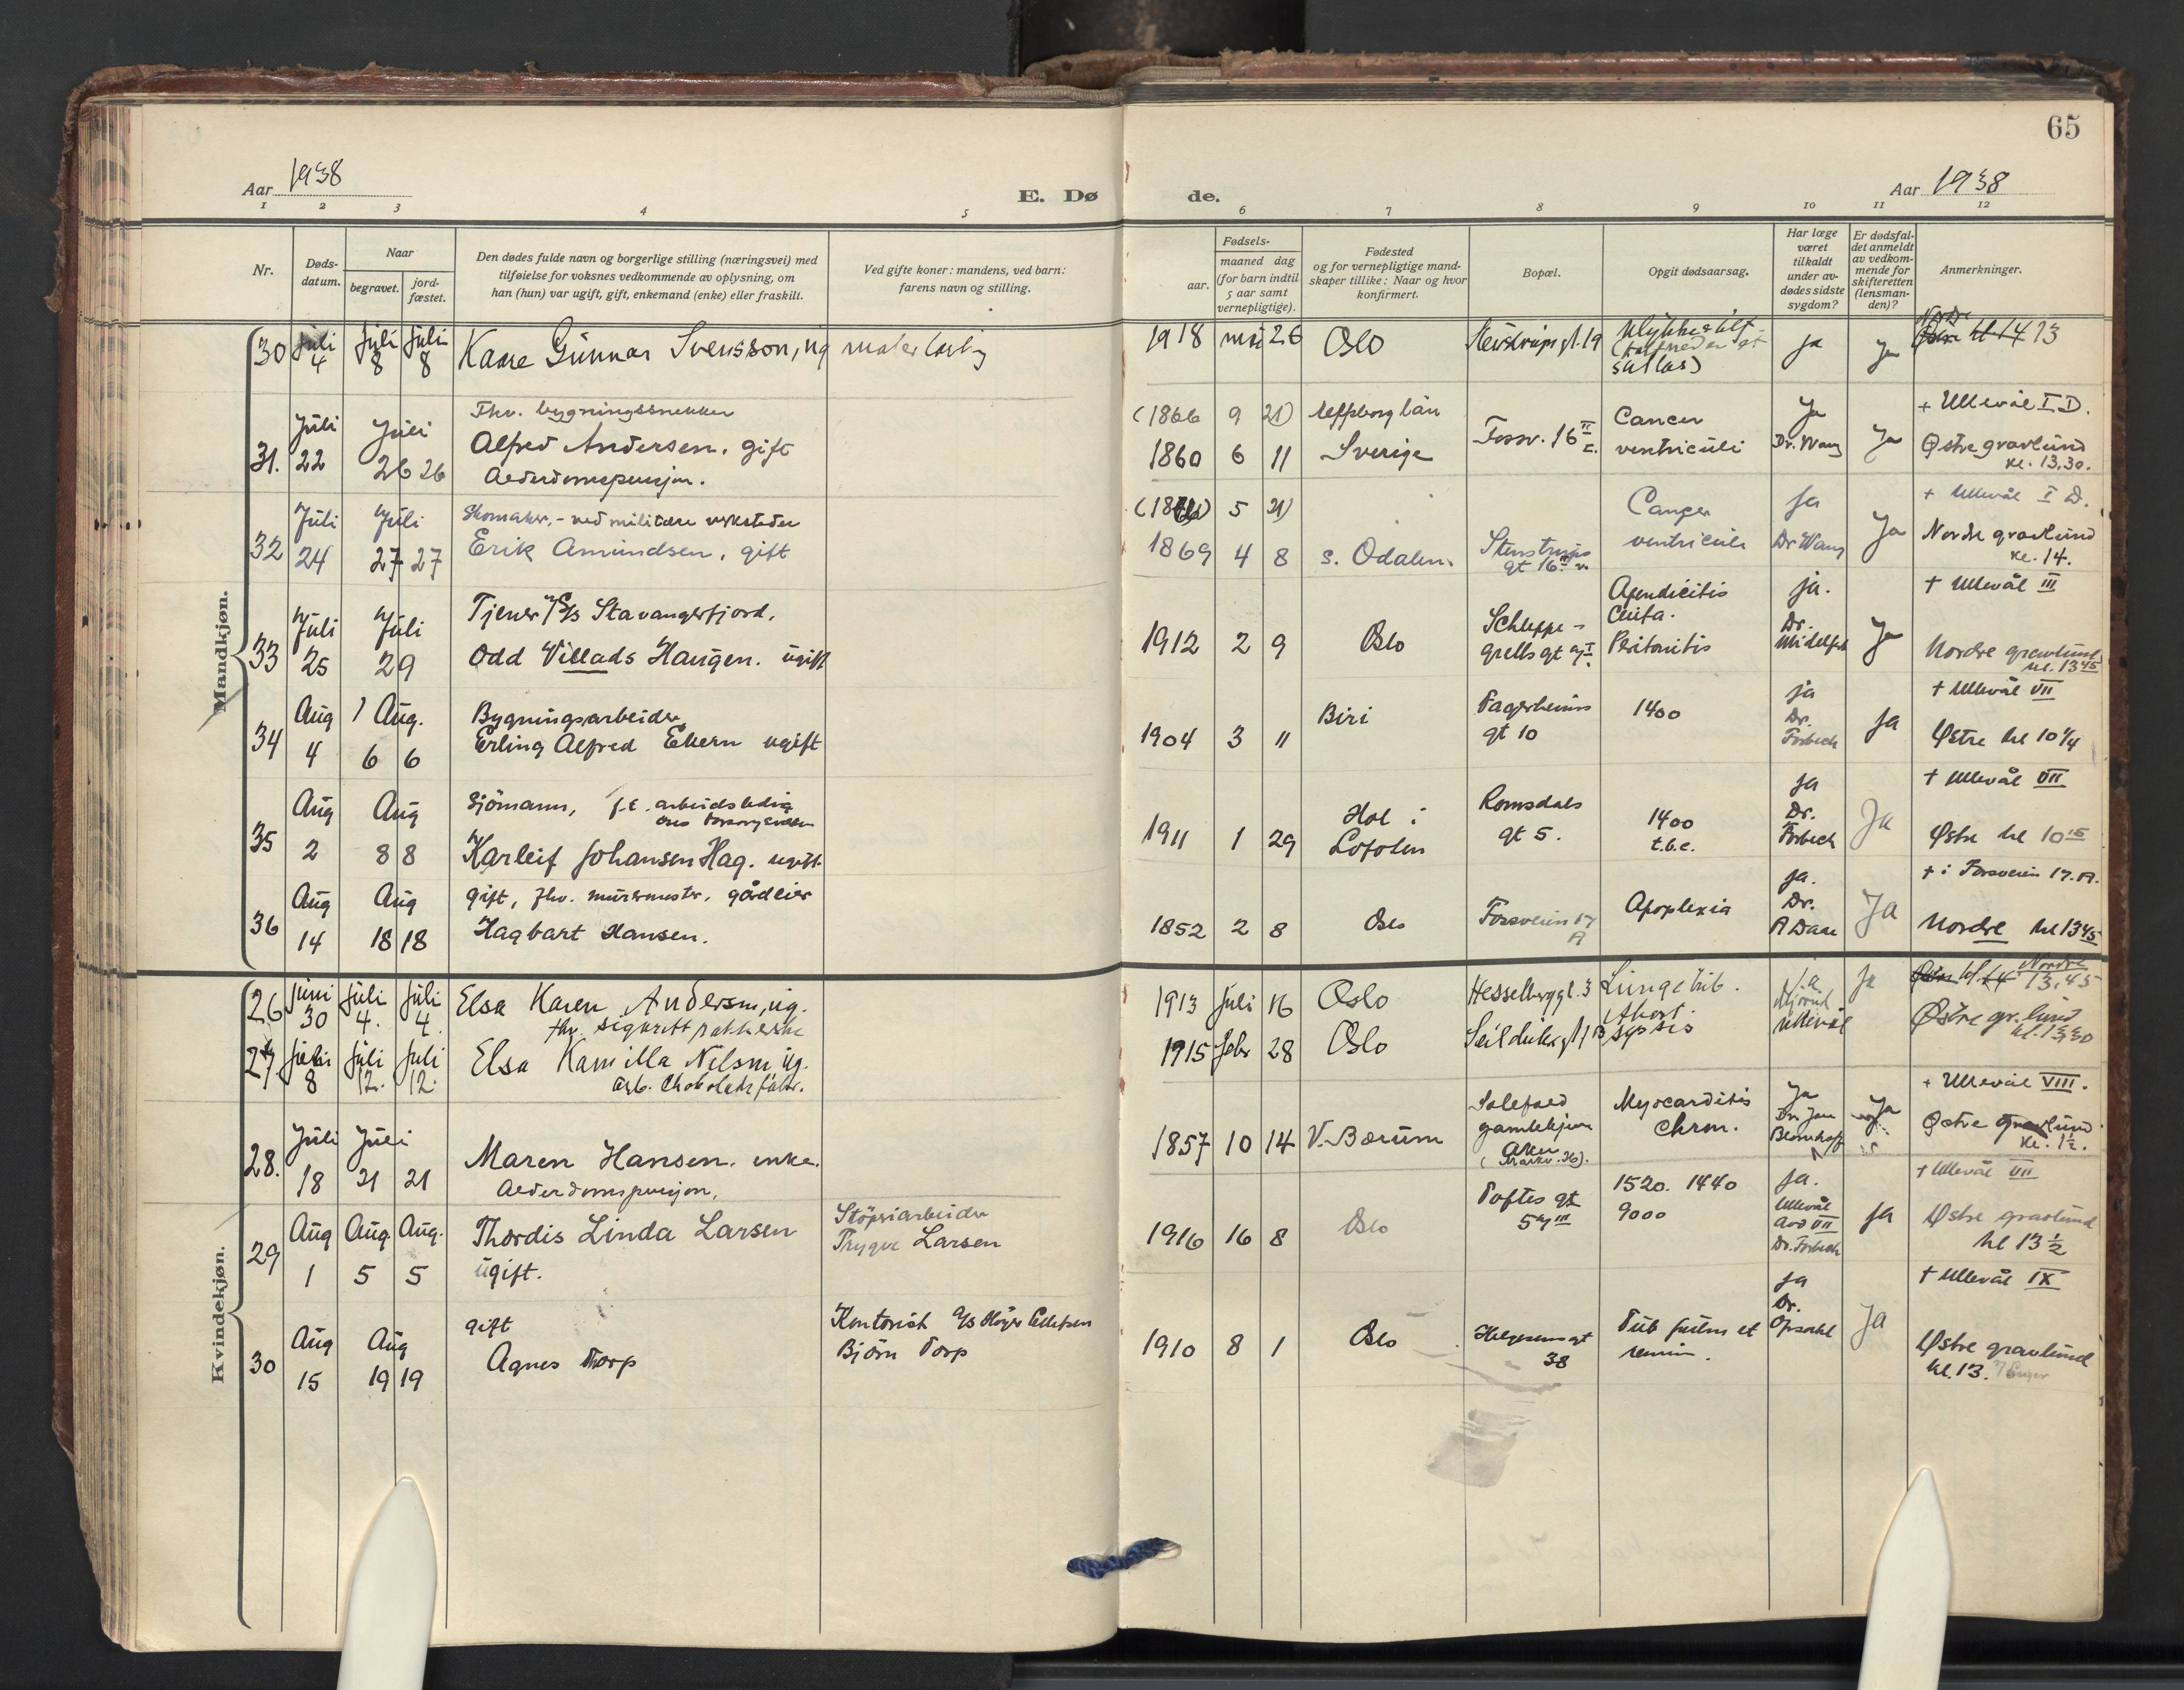 65
Aar 1938
E. Dø
de.
Aar 1938
1 2 3 4 5 6 7 8 9 10 11 12
Nr.
Døds-
datum.
Naar
begravet.
jord-
fæstet.
Den dødes fulde navn og borgerlige stilling (næringsvei) med
tilføielse for voksnes vedkommende av oplysning, om
han (hun) var ugift, gift, enkemand (enke) eller fraskilt.
Ved gifte koner: mandens, ved barn:
farens navn og stilling.
Fødsels-
aar.
maaned dag
(for barn indtil
5 aar samt
vernepligtige).
Fødested
og for vernepligtige mand-
skaper tillike: Naar og hvor
konfirmert.
Bopæl.
Opgit dødsaarsag.
Har læge
været
tilkaldt
under av-
dødes sidste
sygdom?
Er dødsfal-
det anmeldt
av vedkom-
mende for
skifteretten
(lensman-
den)?
Anmerkninger.
Mandkjøn.
30 Juli 4 Juli 8 Juli 8 Kaare Gunnar Svensson, ug
1918 mai 26 Oslo
ja Ja
Nordre
Østre kl 14 13
31. Juli 22 Juli 26 26
Fhv. bygningssnekker
Alfred Andersen. gift
Alderdomspensjon.
(1866 9 21)
1860 6 11
Sverige
Fossv. 16 II
Cancer
ventriculi
Ja
Dr. Wang
Ja
+ Ullevål I D.
Østre gravlund
kl. 13,30.
32 Juli 24 Juli 27 27
Skomaker, - ved militære verksteder
Erik Amundsen, gift
5 21)
1869 4 8
S. Odalen.
Stenstrups
gt 16 III v.
Cancer
ventriculi
Ja
Dr Wang
Ja
+ Ullevål I D.
Nordre gravlund
kl. 14.
33 Juli 25 Juli 29
Tjener M/S Stavangerfjord.
Odd Villads Haugen. ugift
1912 2 9
Oslo
Schleppe-
grells gt
Apendicitis
Peritonitis
ja.
Dr.
Ja
+ Ullevål III
Nordre gravlund
kl. 13 45
34 Aug 4 Aug. 6 6
Bygningsarbeider
Erling Alfred Ekern ugift
1904 3 11
Biri
Fagerheims
gt 10
1400
ja
Dr.
Forbech
Ja
+ Ullevål VII
Østre kl 10 1/4
35 Aug 2 Aug 8 8
Sjömann, f.t. arbeidsledig
Karleif Johansen Hag. ugift
1911 1 29
Hol i
Lofoten
Romsdals
gt 5.
1400
t.b.c.
Ja
Dr.
Forbech
Ja
+ Ullevål VII
Østre kl 10 15
36 Aug 14 Aug 18 18
gift, fhv. murermester, gårdeier
Hagbart Hansen.
1852 2 8
Oslo
Fossveien 17
A
Apoplexia
Ja.
Dr.
A Daae
Ja
+ i Fossveien 17. A.
Nordre kl 13 45
Kvindekjøn.
26 Juni 30 Juli 4. Juli 4.
Elsa Karen Andersen, ug.
fhv. sigarettpakkerske
1913 Juli 16
Oslo
Hesselberggt. 3
Lungetub.
ja
Ja
Nordre
Østre kl. 14 13,45
27 Juli 8 Juli 12. Juli 12.
Elsa Kamilla Nilsen, ug.
arb. Chokoladefabr.
1915 Febr 28
Oslo
Abort.
sepsis
Ullevål
Østre gr. lund
kl. 13,30
28. Juli 18 Juli 21 21
Maren Hansen. enke.
Alderdomspensjon.
1857 10 14
V. Bærum
Solefald
gamlehjem
Aker
(Markv. 36).
Myocarditis
chron.
Ja
Dr. Jan
Ja
+ Ullevål VIII.
Østre gravlund
kl. 1½.
29 Aug 1 Aug 5 Aug. 5
Thordis Linda Larsen
ugift.
Støperiarbeider
Trygve Larsen
1916 16 8
Oslo
Toftes gt
1520. 1440
9000
Ja.
Ullevål
avd VII
Dr. Forbech
Ja
+ Ullevål VII
Østre gravlund
kl 13 ½
30 Aug 15 Aug 19 19
gift
Agnes Thorp
Kontorist A/S Høyer Ellefsen
Björn Torp
1910 8 1
Oslo
Helgesens gt
38
Tub pulm et
renum.
Ja
Dr.
Opsahl
Ja
+ Ullevål IX
Østre gravlund
kl. 13.